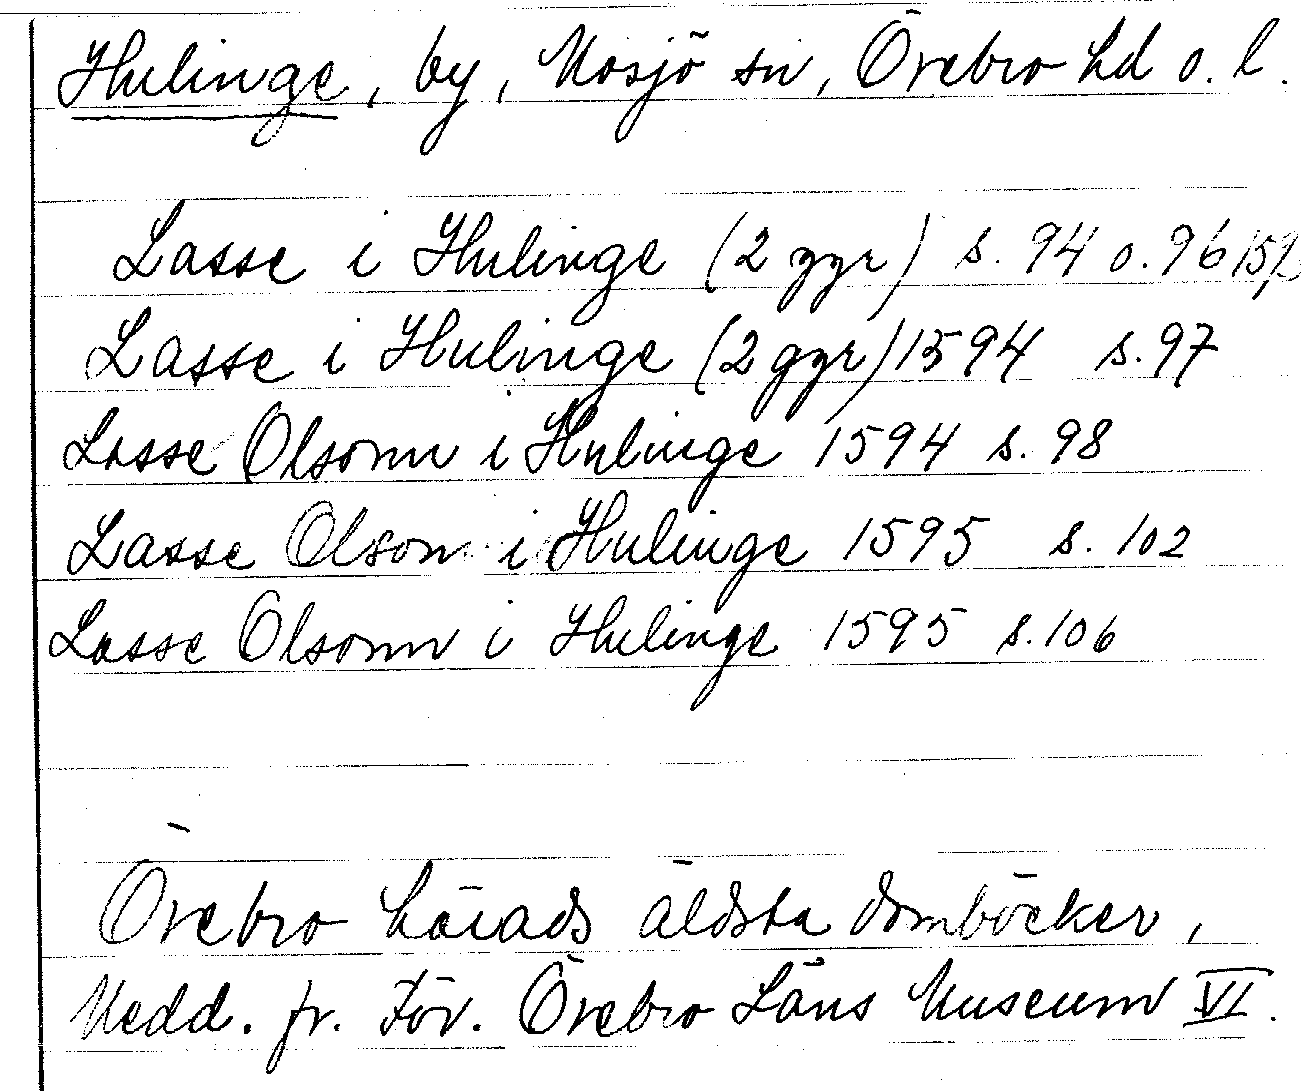 Hulinge, by, Mosjö sn, Örebro hd o. l.
Lasse i Hulinge (2 gyr) s. 94 o. 96
Lasse i Hulinge (2 gyr) 1594 s. 97
Lasse Olsonn i Hulinge 1594 s. 98
Lasse Olson i Hulinge 1595 s. 102
Lasse Olsonn i Hulinge 1595 s. 106
Örebro härads äldsta domböcker,
Medd. fr. För. Örebro Läns Museum VI.